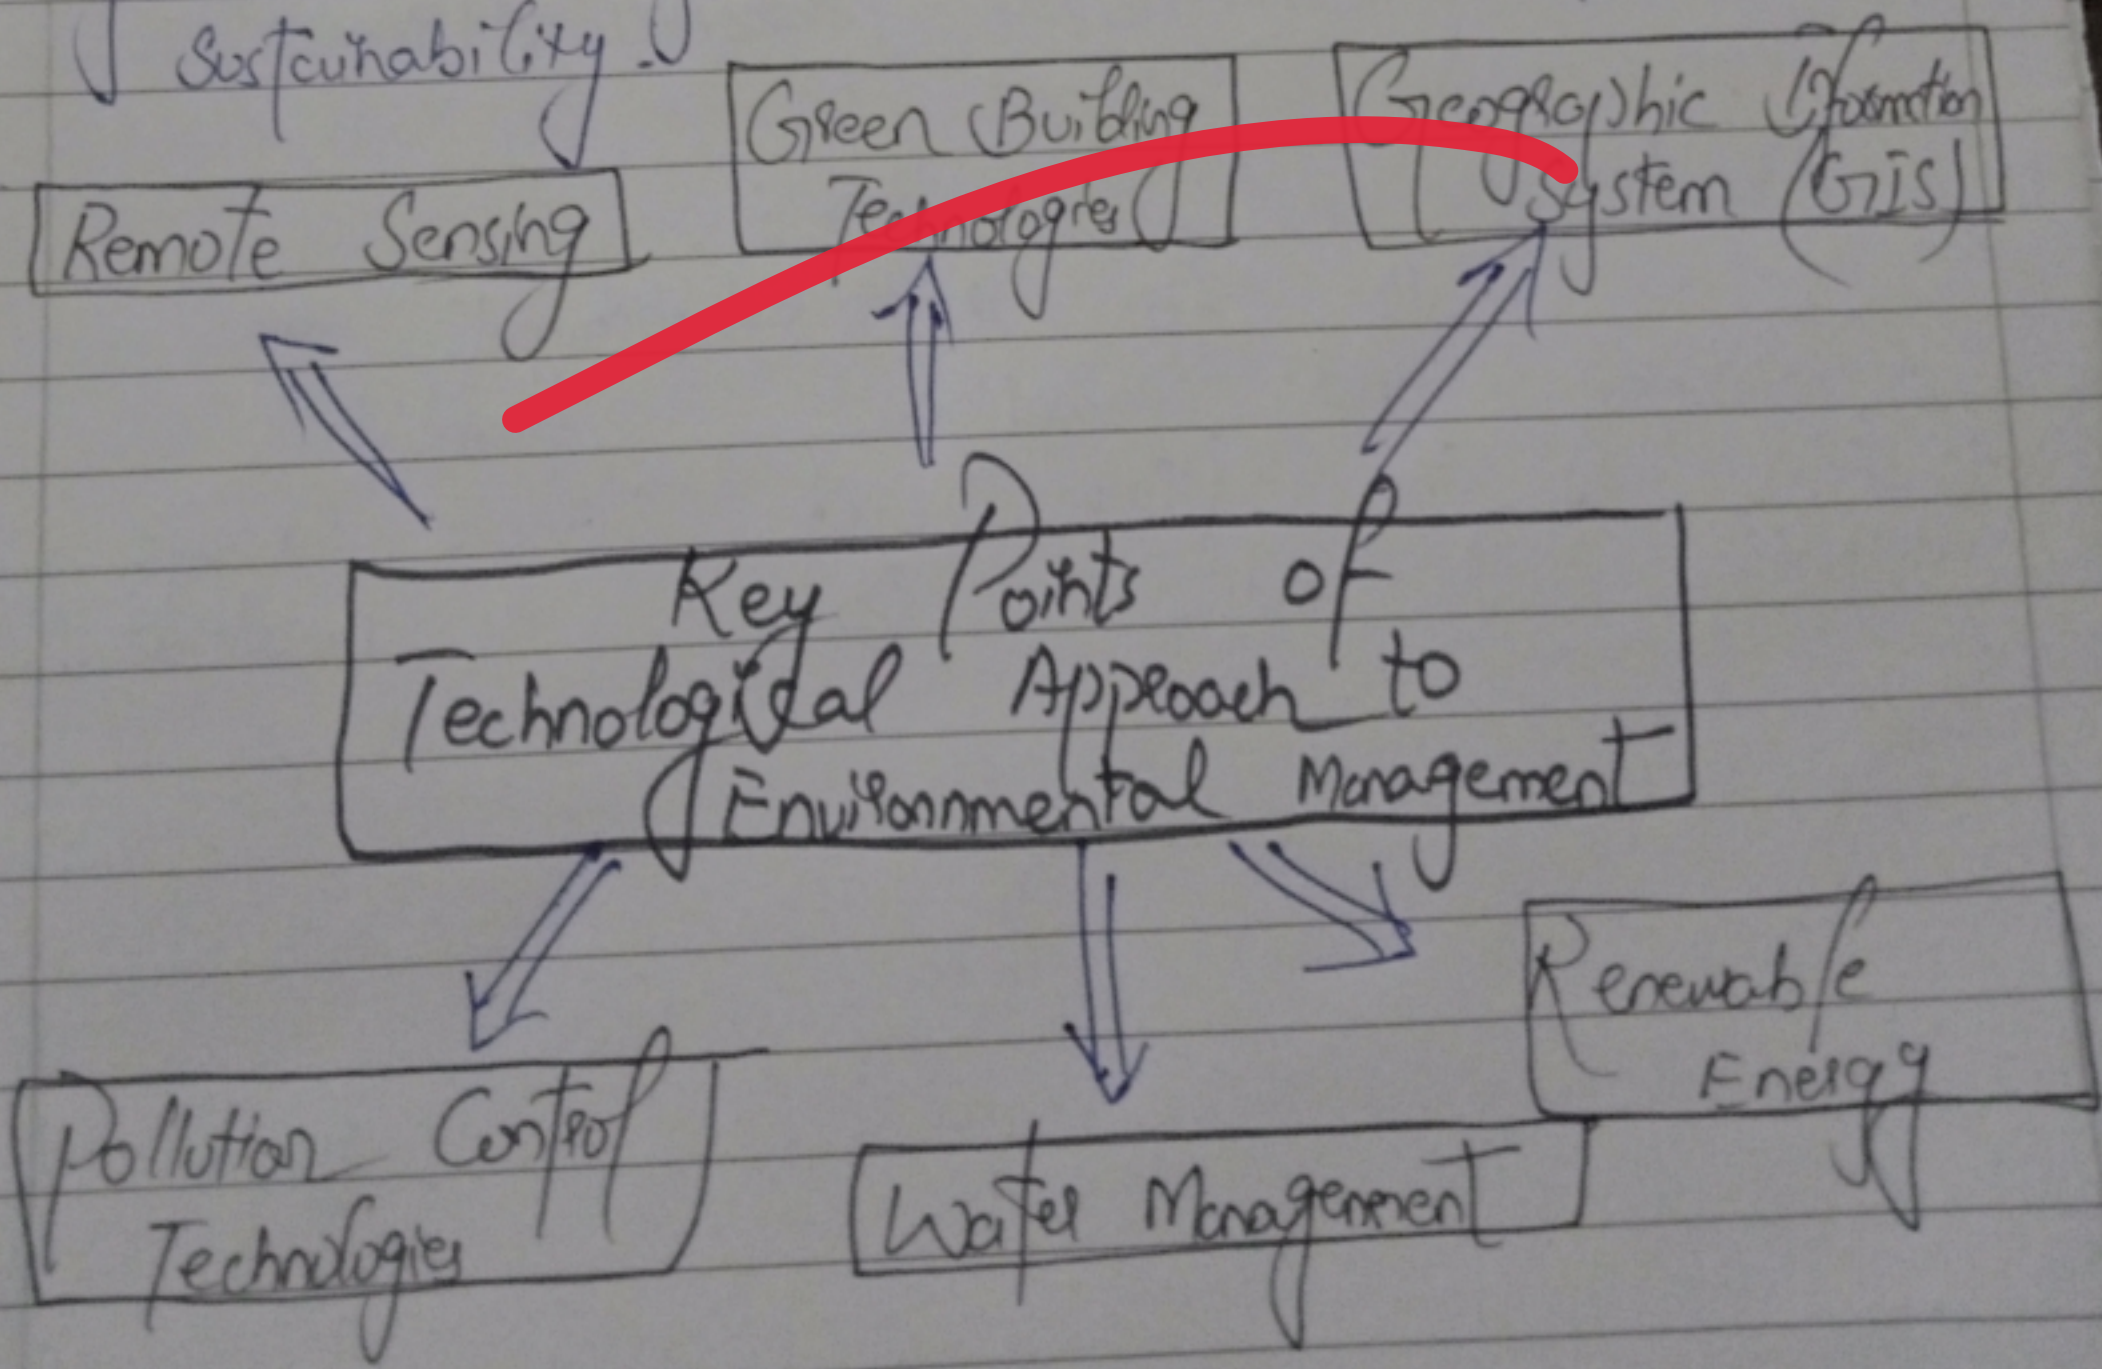 Sustainability.
Remote Sensing
Green Building
Technologies
Geographic Information
System (GIS)
Key Points of
Technological Approach to
Environmental Management
Renewable
Energy
Pollution Control
Technologies
Water Management